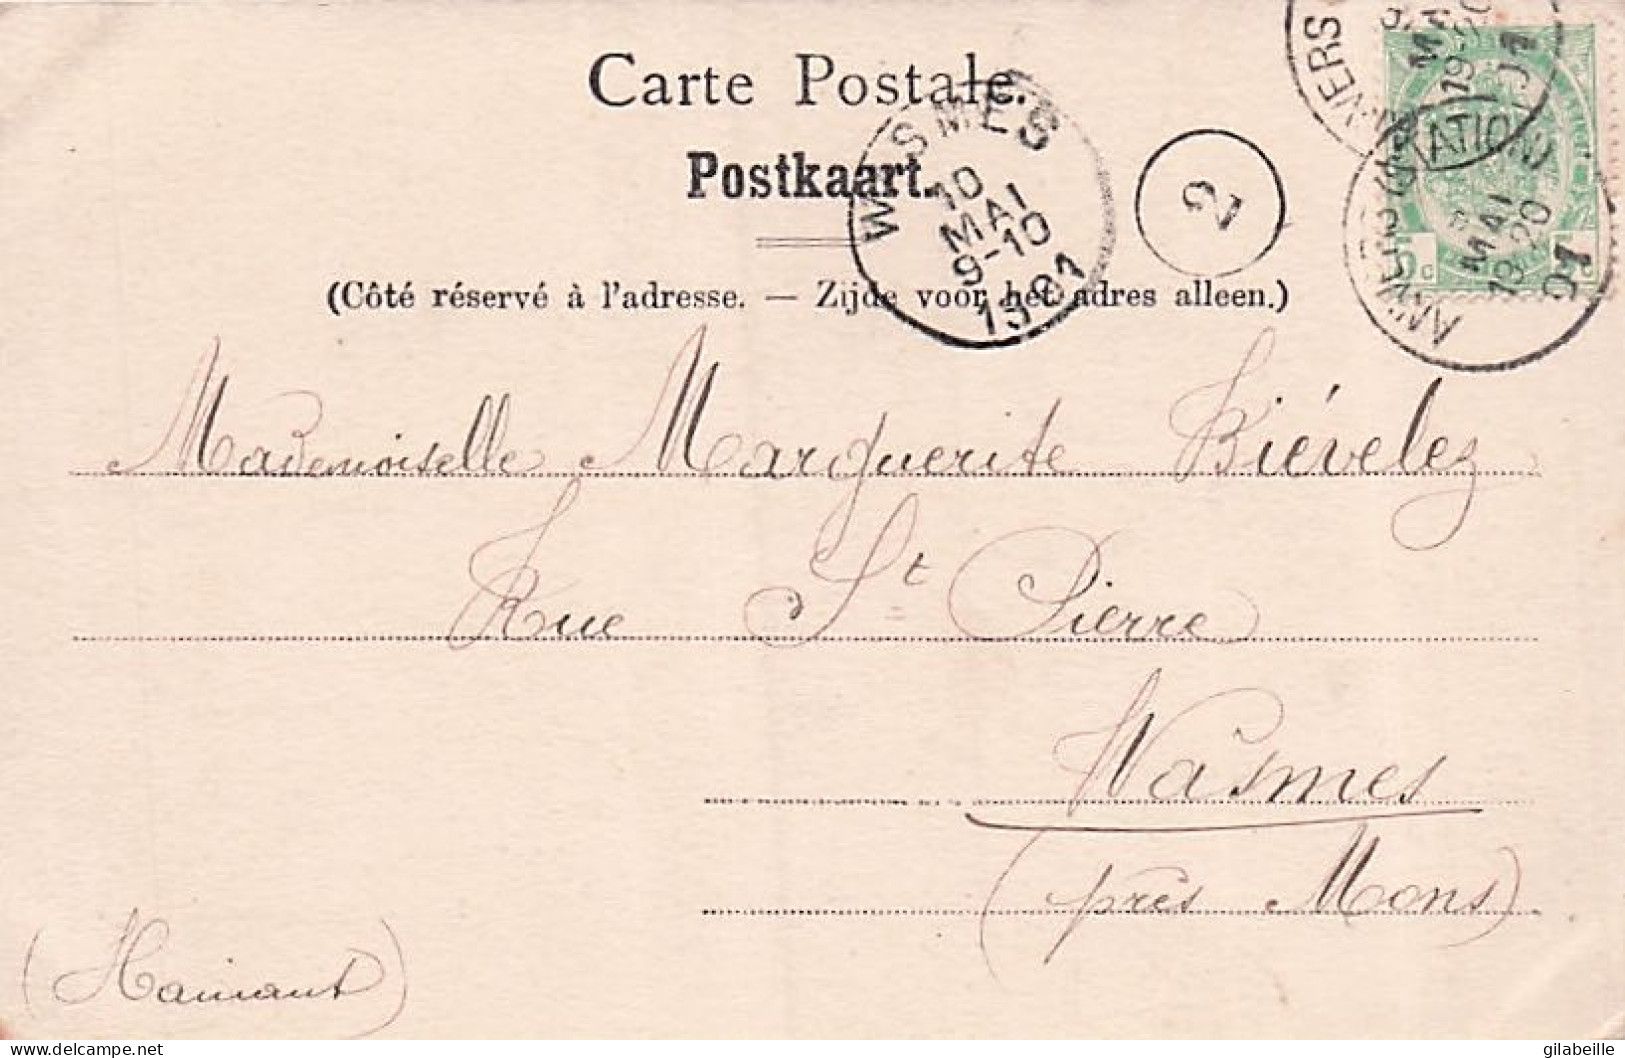 Carte Postale.
Postkaart.
(Côté réservé à l'adresse. — Zijde voor het adres alleen.)
WASMES
10
MAI
9-10
1901
2
ANVERS
MAI
01
ANVERS (STATION)
MAI
19 20
01
5c
Mademoiselle Marguerite Biévelez
Rue St Pierre
Wasmes
(près Mons)
(Hainaut)
delcampe.net
gilabeille